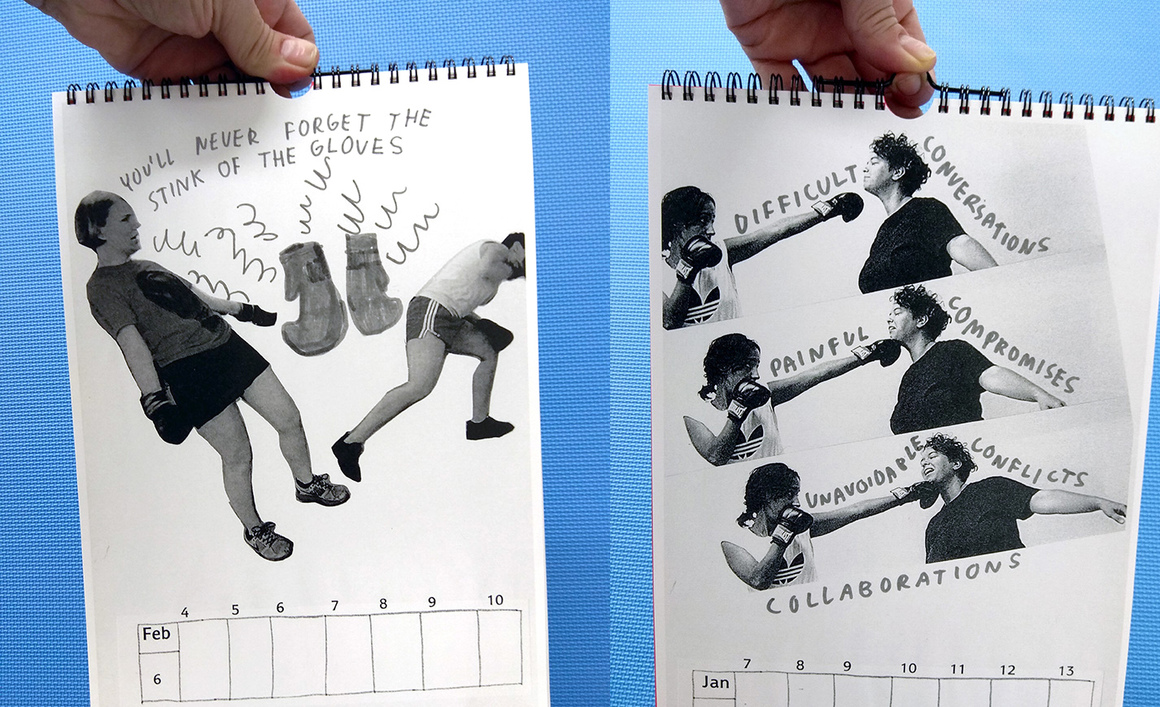 YOU'LL NEVER FORGET THE
STINK OF THE GLOVES
4 5 6 7 8 9 10
Feb
6
DIFFICULT CONVERSATIONS
PAINFUL COMPROMISES
UNAVOIDABLE CONFLICTS
COLLABORATIONS
7 8 9 10 11 12 13
Jan